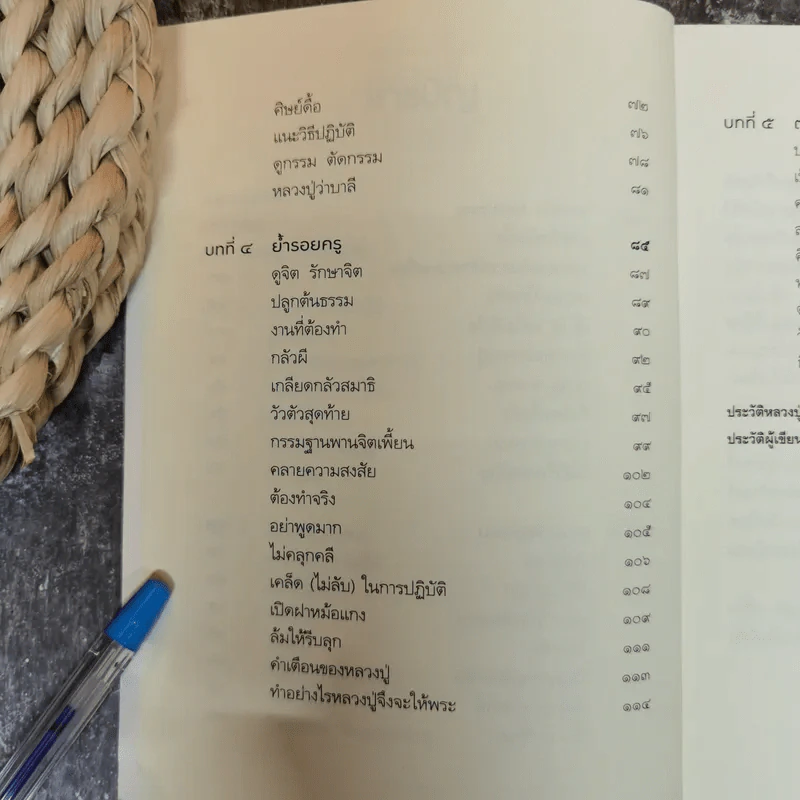 ศิษย์ดื้อ ๗๒
แนะวิธีปฏิบัติ ๗๖
ดูกรรม ตัดกรรม ๗๘
หลวงปู่ว่าบาลี ๘๑
บทที่ ๔ ย้ำรอยครู ๘๕
ดูจิต รักษาจิต ๘๗
ปลูกต้นธรรม ๘๙
งานที่ต้องทำ ๙๐
กลัวผี ๙๒
เกลียดกลัวสมาธิ ๙๕
วัวตัวสุดท้าย ๙๗
กรรมฐานพานจิตเพี้ยน ๙๙
คลายความสงสัย ๑๐๒
ต้องทำจริง ๑๐๔
อย่าพูดมาก ๑๐๕
ไม่คลุกคลี ๑๐๖
เคล็ด (ไม่ลับ) ในการปฏิบัติ ๑๐๘
เปิดฝาหม้อแกง ๑๐๙
ล้มให้รีบลุก ๑๑๑
คำเตือนของหลวงปู่ ๑๑๓
ทำอย่างไรหลวงปู่จึงจะให้พระ ๑๑๔
บทที่ ๕
ประวัติหลวงปู่
ประวัติผู้เขียน